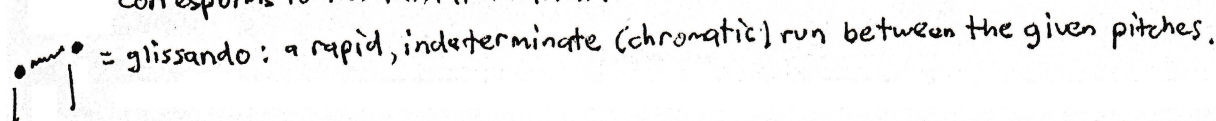 = glissando: a rapid, indeterminate (chromatic) run between the given pitches.